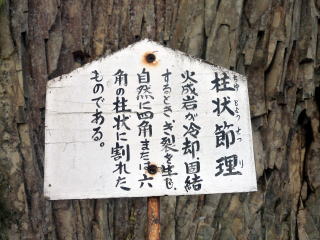 柱状節理
ちゅうじょうせつり
火成岩が冷却固結
するとき、き裂を生じ、
自然に四角または六
角の柱状に割れた
ものである。